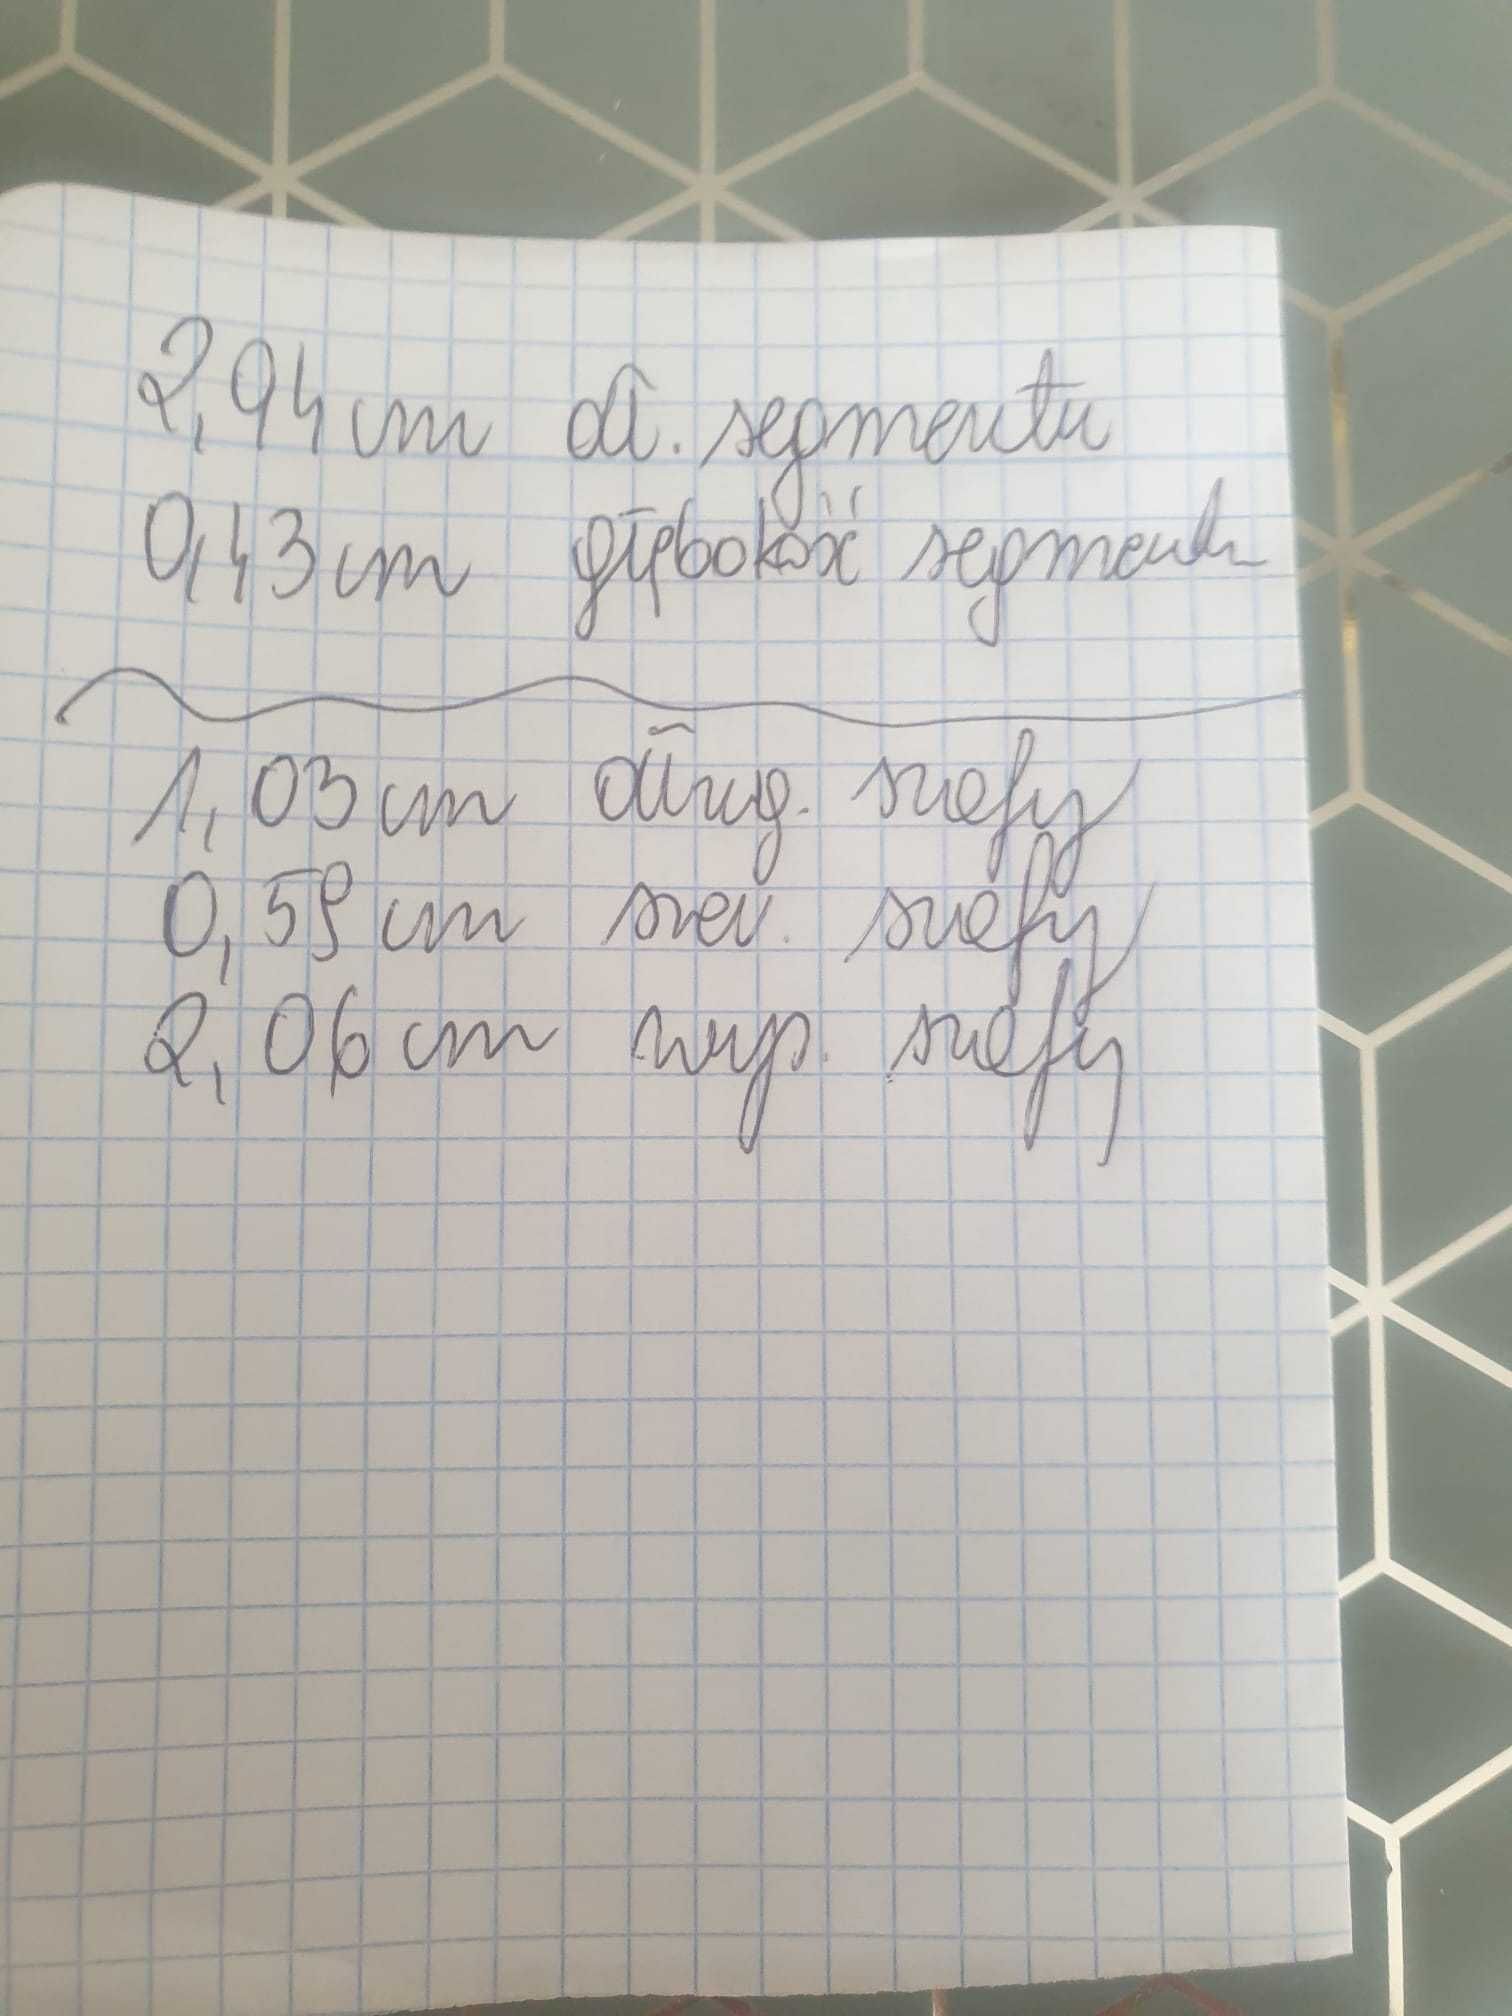 2,94 cm dł. segmentu
0,43 cm głębokość segmentu
1,03 cm dług. szafy
0,59 cm szer. szafy
2,06 cm wys. szafy